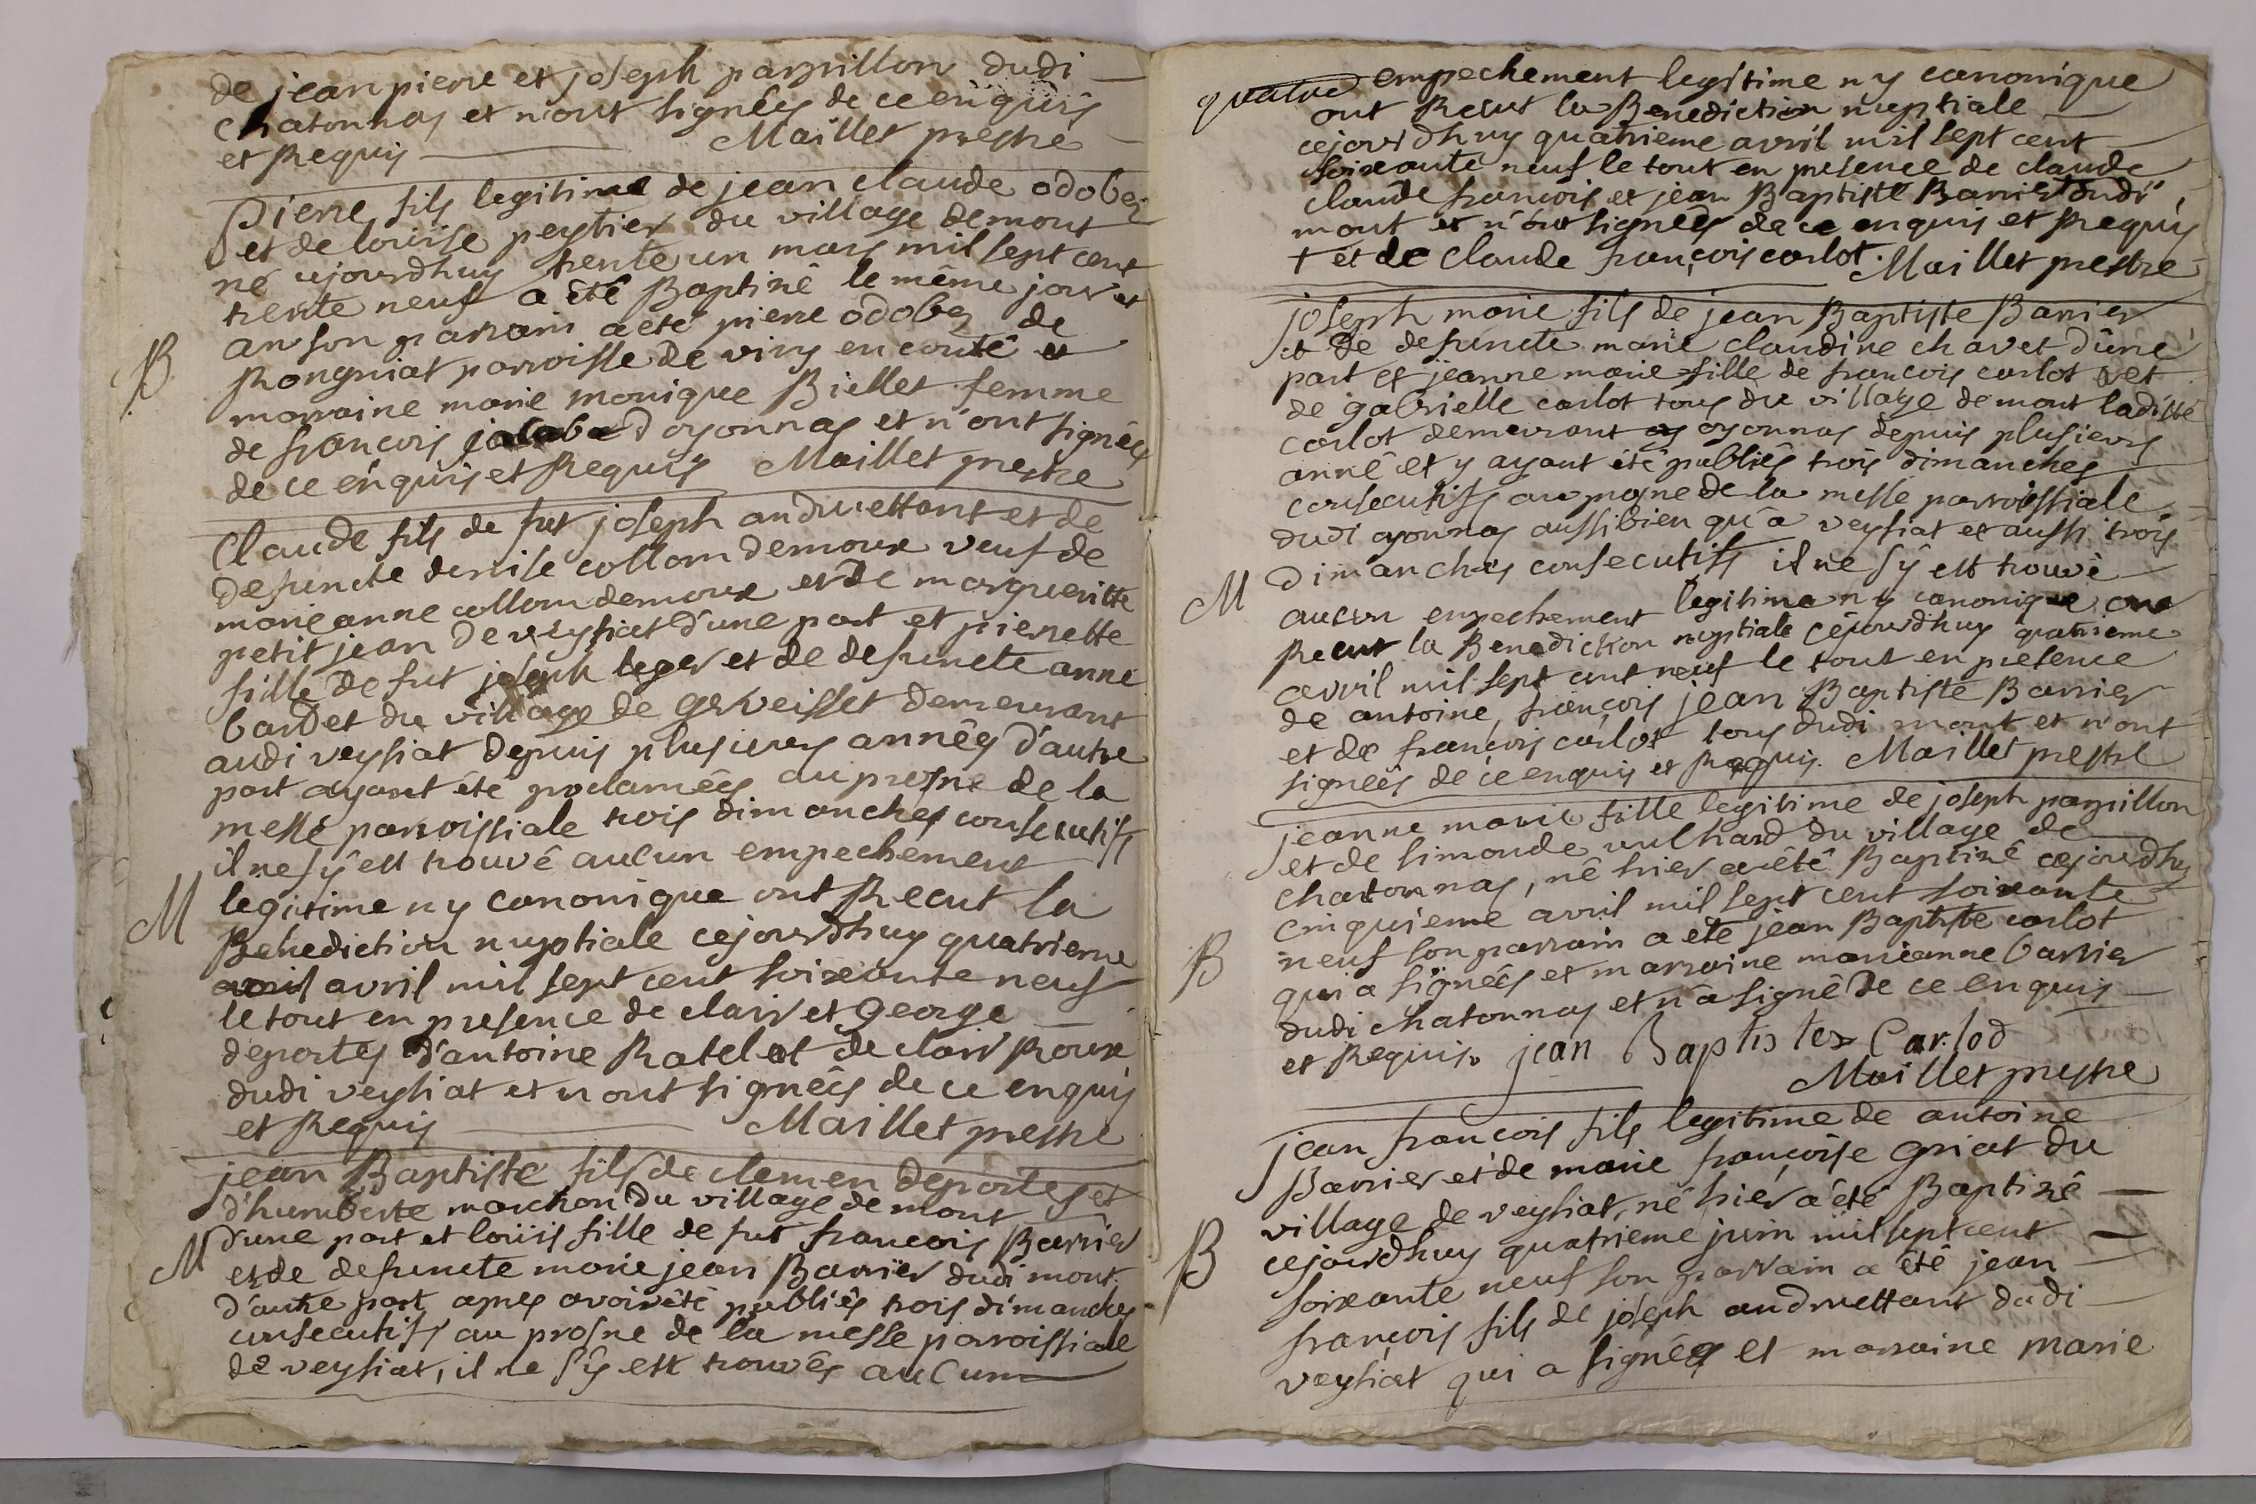 de jean pierre et joseph parpillon dudi
chatonnas et n'ont signées de ce enquis
et Requis Maillet prestre
Pierre fils legitime de jean claude odobez
et de louise peytier du village demont
né cejourdhuy trente un mars mil sept cent
trente neuf a été Baptisé le même jour et
an son parrain a été pierre odobez de
B
Rongniat parroisse de viry en conté et
marraine marie monique Biellet femme
de francois d'oyonnas et n'ont signées
de ce enquis et Requis Maillet prestre
Claude fils de fut joseph andruettant et de
defuncte denise collomdemoux veuf de
marieanne collomdemoux et de margueritte
petit jean de veysiat d'une part et pierrette
fille de fut joseph leger et de defuncte anne
bardet du village de gerveisset demeurant
audi veysiat depuis plusieurs annéés d'autre
part ayant été proclamées au prosne de la
messe parroissiale trois dimanches consecutifs
il ne sÿ est trouvé aucun empechement
M
legitime n y canonique ont Recut la
Benediction nuptiale cejourdhuy quatrieme
avril avril mil sept cent soixante neuf
le tout en presence de clair et george
deportes d'antoine Ratelet de clair Roux
dudi veysiat et n'ont signéés de ce enquis
et Requis Maillet prestre
jean Baptiste fils de clemen deportes et
d'humberte marchon du village de mont
M
d'une part et loüis fille de fut francois Barrier
et de defuncte marie jean Barrier dudi mont
d'autre part apres avoir été publiés trois dimanches
consecutifs au prosne de la messe paroissiale
de veysiat, il ne sÿ est trouvés aucun
quatre empechement legitime n y canonique
ont Recut la Benediction nuptiale
cejourdhuy quatrieme avril mil sept cent
soixante neuf le tout en presence de claude
claude francois et jean Baptiste Barrier dudi
mont et n'ont signéés de ce enquis et Requis
+ et de Claude françois carlot. Maillet prestre
joseph marie fils de jean Baptiste Barrier
et de defuncte marie claudine chavet d'une
part et jeanne marie fille de francois carlot et
de gabrielle carlot tous du village de mont laditte
carlot demeurant oyonnas depuis plusieurs
anné et y ayant été publiés trois dimanches
consecutifs au prosne de la messe parroissiale
dudi oyonnas aussibien qu'a veysiat et aussi trois
M
dimanches consecutifs il ne sÿ est trouvé
aucun empechement legitime n y canonique ont
Recut la Benediction nuptiale cejourdhuy quatrieme
avril mil sept cent neuf le tout en presence
de antoine, françois jean Baptiste Barrier
et de françois carlot tous dudi mont et n'ont
signéés de ce enquis et Requis. Maillet prestre
jeanne marie fille legitime de joseph parpillon
et de simonde vulhard du village de
chatonnas, né hier a été Baptisé cejourdhuy
cinquieme avril mil sept cent soixante
B
neuf son parrain a été jean Baptiste carlot
qui a signéés et marraine marieanne barrier
dudi chatonnas et n'a signé de ce enquis
et Requis. jean Baptistes Carlod
Maillet prestre
jean francois fils legitime de antoine
Barrier et de marie françoise griat du
village de veysiat, né hier a été Baptisé
B
cejourdhuy quatrieme juin mil sept cent
soixante neuf son parrain a été jean
françois fils de joseph andruettant dudi
veysiat qui a signéés et marraine marie